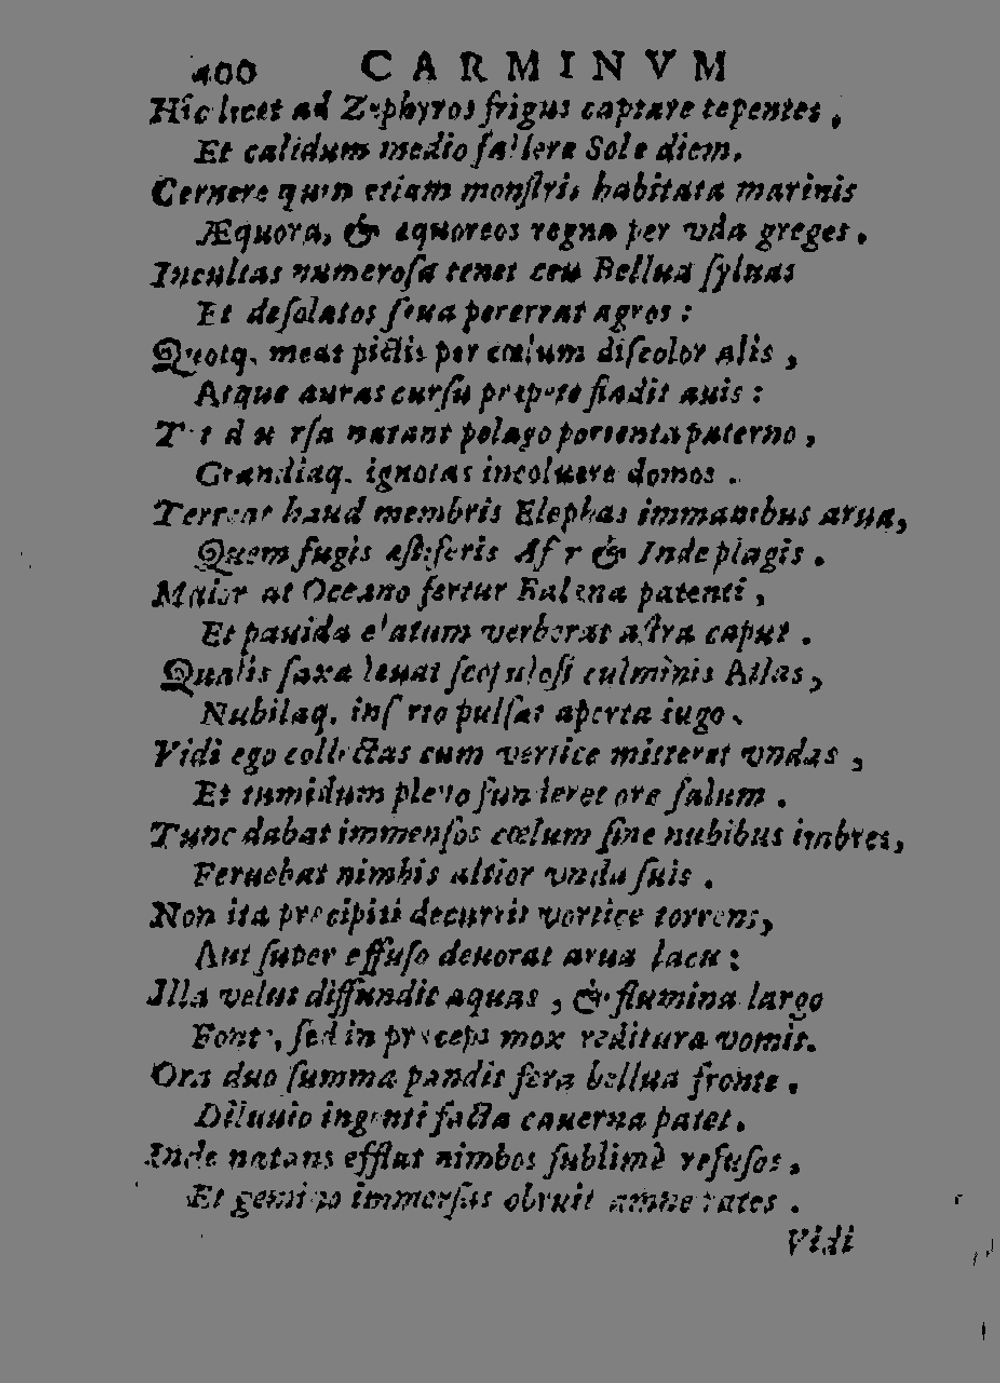 400 CARMINVM
Hic licet ad Zephyros frigus captare tepentes,
Et calidum medio fallere Sole diem.
Cernere quin etiam monſtris habitata marinis
Æquora, & æquoreos regna per vda greges.
Incultas numeroſa tenet ceu Bellua ſyluas
Et deſolatos ſæua pererrat agros:
Quotq. meat pictis per cœlum diſcolor Alis,
Atque auras curſu præpete findit auis:
natant pelago portenta paterno,
Grandiaq. ignotas incoluere domos.
Terreat haud membris Elephas immanibus arua,
Quem fugis æſtiferis & Inde plagis.
Maior at Oceano fertur Balena patenti,
Et pauida elatum verberat aſtra caput.
Qualis ſaxa leuat ſcopuloſi culminis Atlas,
Nubilaq. pulſat aperta iugo.
Vidi ego collectas cum vertice mitteret vndas,
Et tumidum pleno funderet ore ſalum.
Tunc dabat immenſos cœlum ſine nubibus imbres,
Feruebat nimbis altior vnda ſuis.
Non ita præcipiti decurrit vortice torrens,
Aut ſuper effuſo deuorat arua lacu:
Illa velut diffundit aquas, & flumina largo
Fonte, ſed in præceps mox reditura vomit.
Ora duo ſumma pandit fera bellua fronte.
Diluuio ingenti facta cauerna patet.
Inde natans efflat nimbos ſublimè refuſos,
Et gemino immerſas obruit amne rates.
Vidi